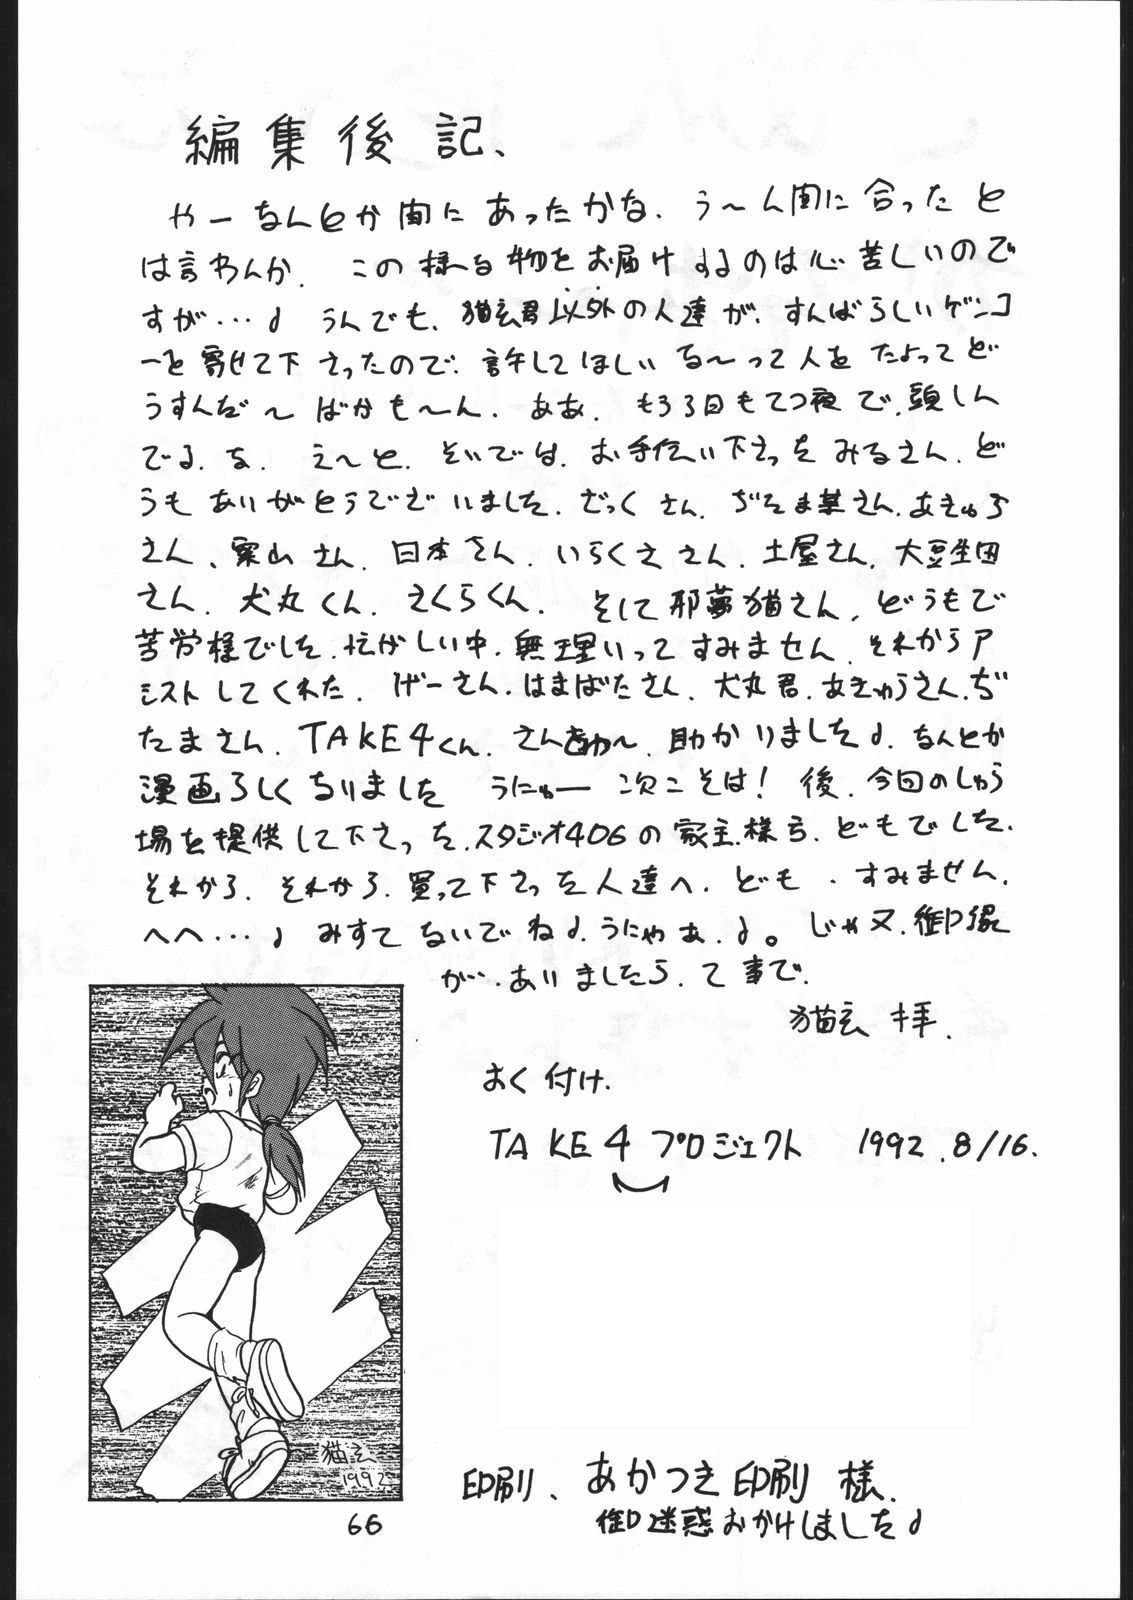 編集後記、
やーなんとか間にあったかな、う〜ん間に合ったと
は言わんか、この様な物をお届けするのは心苦しいので
すが…♪ うんでも、猫玄君以外の人達が、すんばらしいゲンコ
ーを寄せて下さったので、許してほしいな〜って人をたよってど
うすんだ〜ばかも〜ん、ああ、もう3日もてつ夜で、頭しん
でる、な、え〜と、そいでは、お手伝い下さったみなさん、ど
うもありがとうございました、ざっくさん、ぢたま某さん、あきゅら
さん、栗山さん、日本さん、いらくささん、土屋さん、大豆生田
さん、犬丸くん、さくらくん、そして邪夢猫さん、どうもご
苦労様でした、忙がしい中、無理いってすみません、それからア
シストしてくれた、げーさん、はまばたさん、犬丸君、あきゅうさん、ぢ
たまさん、TAKE4くん、さん、助かりました♪、なんとか
漫画らしくなりました うにゅー 次こそは! 後、今回のしゅら
場を提供して下さった、スタジオ406の家主様方、どもでした、
それから、それから、買って下さった人達へ、ども、すみません、
へへ…♪ みすてないでね♪、うにゃぁ、♪。じゃ又、御縁
が…ありましたら、て事で、
猫玄 拝、
おく付け、
TAKE4プロジェクト 1992.8/16.
猫玄
1992
印刷、あかつき印刷 様、
御迷惑おかけしました♪
66